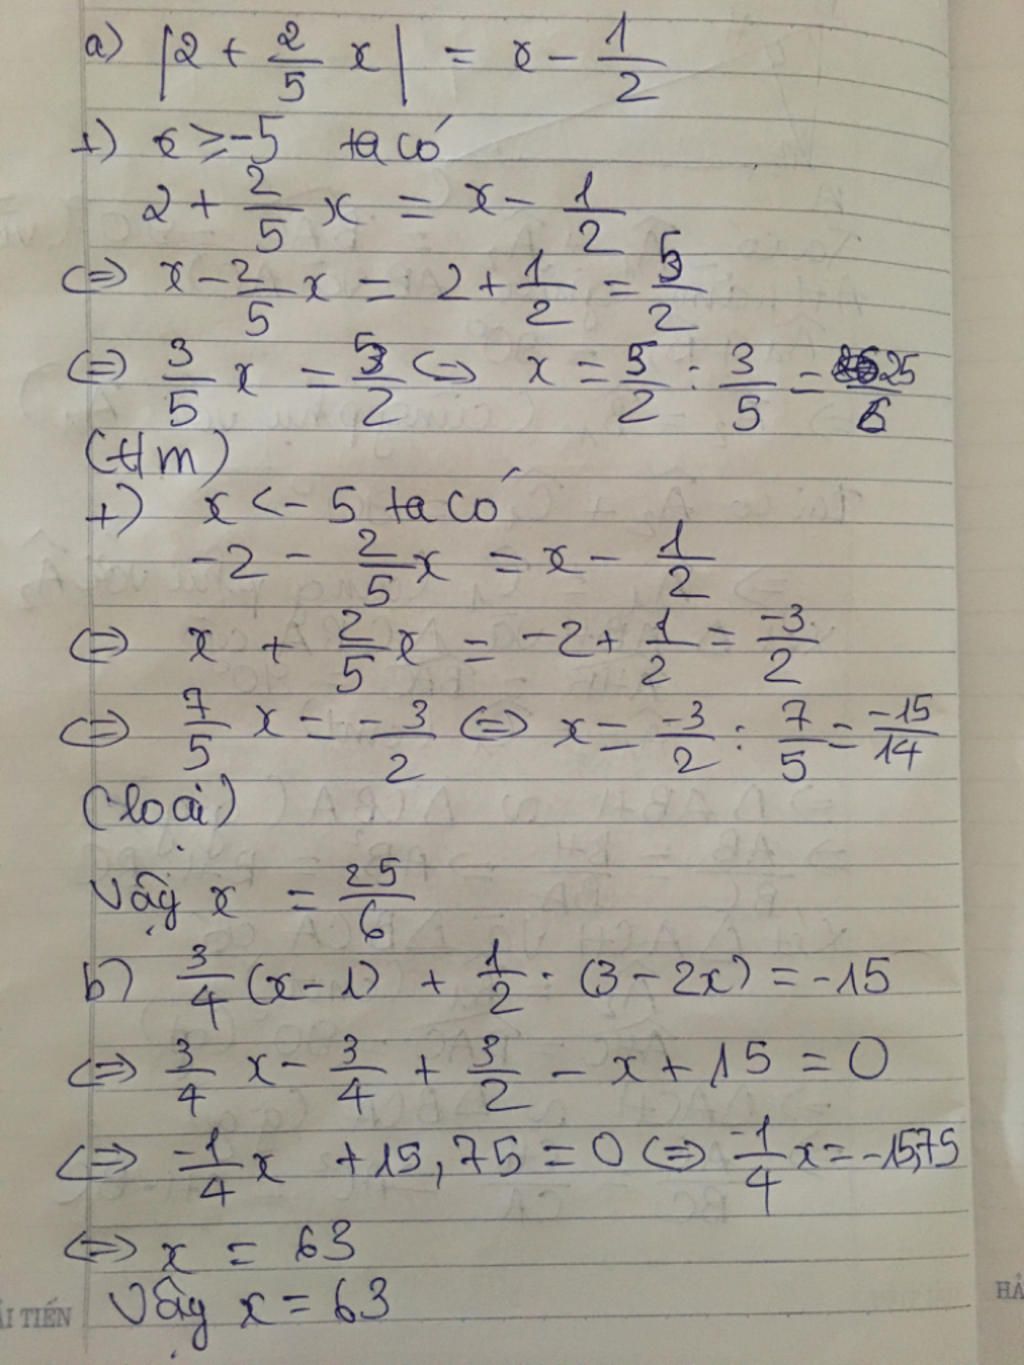 a) |2 + 2/5 x| = x - 1/2
+) x ≥ -5 ta có
2 + 2/5 x = x - 1/2
<=> x - 2/5 x = 2 + 1/2 = 5/2
<=> 3/5 x = 5/2 <=> x = 5/2 : 3/5 = 25/6
(t/m)
+) x < -5 ta có
-2 - 2/5 x = x - 1/2
<=> x + 2/5 x = -2 + 1/2 = -3/2
<=> 7/5 x = -3/2 <=> x = -3/2 : 7/5 = -15/14
(loại)
Vậy x = 25/6
b) 3/4 (x - 1) + 1/2 . (3 - 2x) = -15
<=> 3/4 x - 3/4 + 3/2 - x + 15 = 0
<=> -1/4 x + 15,75 = 0 <=> -1/4 x = -15,75
<=> x = 63
Vậy x = 63
ẢI TIẾN
HẢ